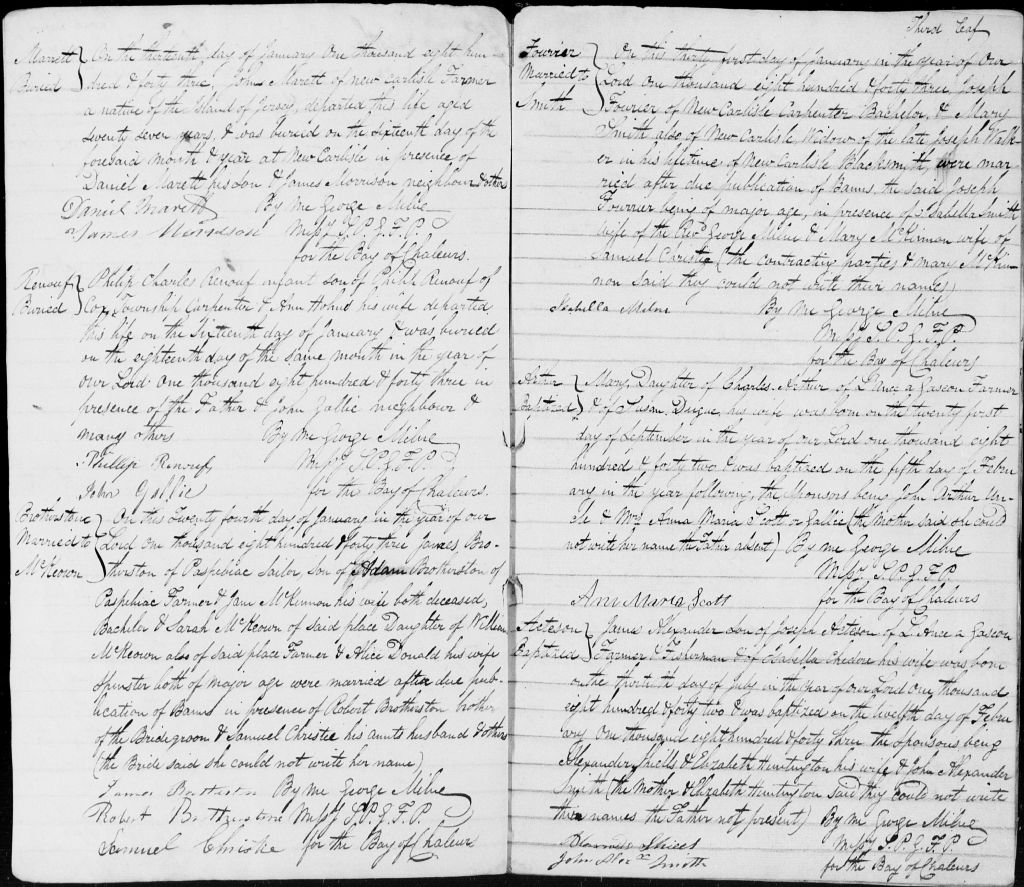 Marett } On the thirteenth day of January One thousand eight hun
Buried } dred & forty three, John Marett of New Carlisle Farmer
a native of the Island of Jersey, departed this life aged
seventy seven years, & was buried on the sixteenth day of the
foresaid month & year at New Carlisle in presence of
Daniel Marett his son & James Morrison neighbour & others
Daniel Marett By Me George Milne
James Morrison Missy S.P.G.F.P.
for the Bay of Chaleurs.
Renouf } Philip Charles Renouf infant son of Philip Renouf of
Buried } Cox Township Carpenter & Ann his wife departed
this life on the Sixteenth day of January & was buried
on the eighteenth day of the same month in the year of
our Lord One thousand eight hundred & forty three in
presence of the Father & John Gallie neighbour &
many others By Me George Milne
Phillip Renouf Missy S.P.G.F.P.
John Gallie for the Bay of Chaleurs.
Brotherstone } On this Twenty fourth day of January in the year of our
Married to } Lord One thousand eight hundred & forty three James Bro-
McKeown } therston of Paspebiac Sailor, Son of Adam Brotherston of
Paspebiac Farmer & Jane McKinnon his wife both deceased,
Bachelor & Sarah McKeown of said place Daughter of William
McKeown also of said place Farmer & Alice Donald his wife
Spinster both of major age were married after due pub-
lication of Banns in presence of Robert Brotherston brother
of the Bridegroom & Samuel Christie his aunts husband & others
(the Bride said she could not write her name)
James By Me George Milne
Robert Brotherstone Missy S.P.G.F.P.
Samuel Christie for the Bay of Chaleur
Third Leaf
Fourrier } On this thirty first day of January in the year of Our
Married to } Lord One thousand eight hundred & forty three Joseph
Smith } Fourier of New Carlisle Carpenter Bachelor, & Mary
Smith also of New Carlisle Widow of the late Joseph Walk-
er in his lifetime of New Carlisle Blacksmith were mar
ried after due publication of Banns, the said Joseph
Fourrier being of major age, in presence of Isabella Smith
wife of the Revd George Milne & Mary McKinnon wife of
Samuel Christie (the contracting parties & Mary McKin-
non said they could not write their names)
Isabella Milne By Me George Milne
Missy S.P.G.F.P.
for the Bay of Chaleurs
Arthur } Mary, Daughter of Charles Arthur of L'Ance a Gascon Farmer
Baptized } & of Susan Dugue, his wife was born on the twenty first
day of September in the year of our Lord one thousand eight
hundred & forty two & was baptized on the fifth day of Febru
ary in the year following, the sponsors being John Arthur Un-
cle & Mrs Anna Maria Scott or Gallie (the Mother said she could
not write her name the Father absent) By me George Milne
Missy S.P.G.F.P.
Ann Maria Scott for the Bay of Chaleurs
Acteson } James Alexander son of Joseph Acteson of L'Ance a Gascon
Baptized } Farmer & Fisherman & of Isabella Chedore his wife was born
on the thirtieth day of July in the year of our Lord One thousand
eight hundred & forty two & was baptized on the twelfth day of Febru
ary One thousand eight hundred & forty three the Sponsors being
Alexander Shiells & Elizabeth Huntington his wife & John Alexander
Smith (the Mother & Elizabeth Huntington said they could not write
their names the Father not present) By Me George Milne
Missy S.P.G.F.P.
John Alexr Smith for the Bay of Chaleurs